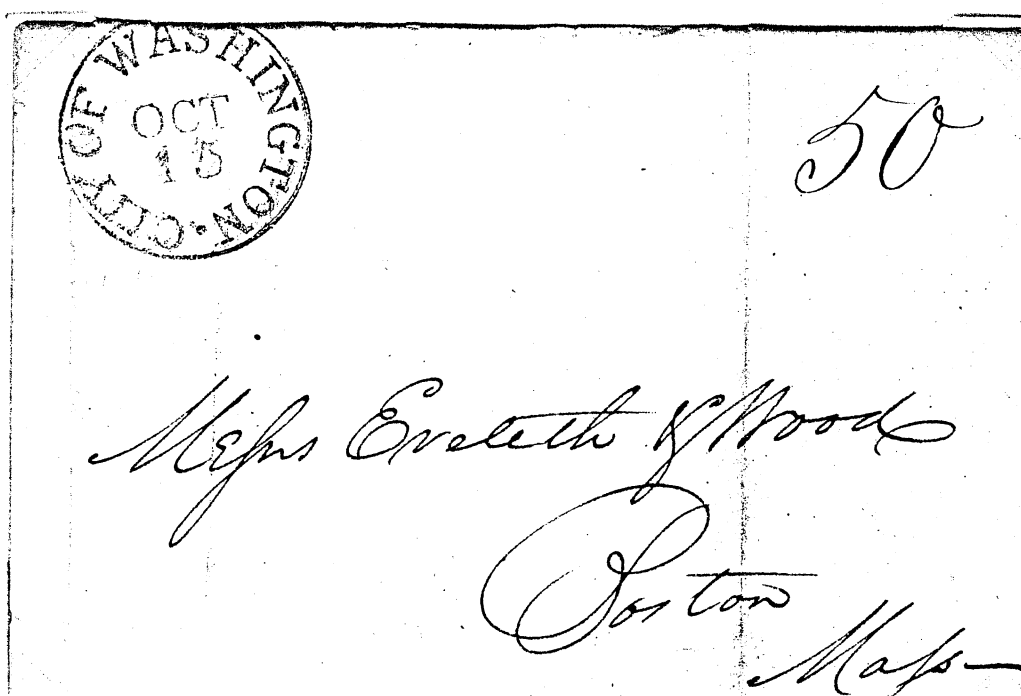 CITY OF WASHINGTON
OCT
15
50
Messrs Eveleth & Wood
Boston
Mass